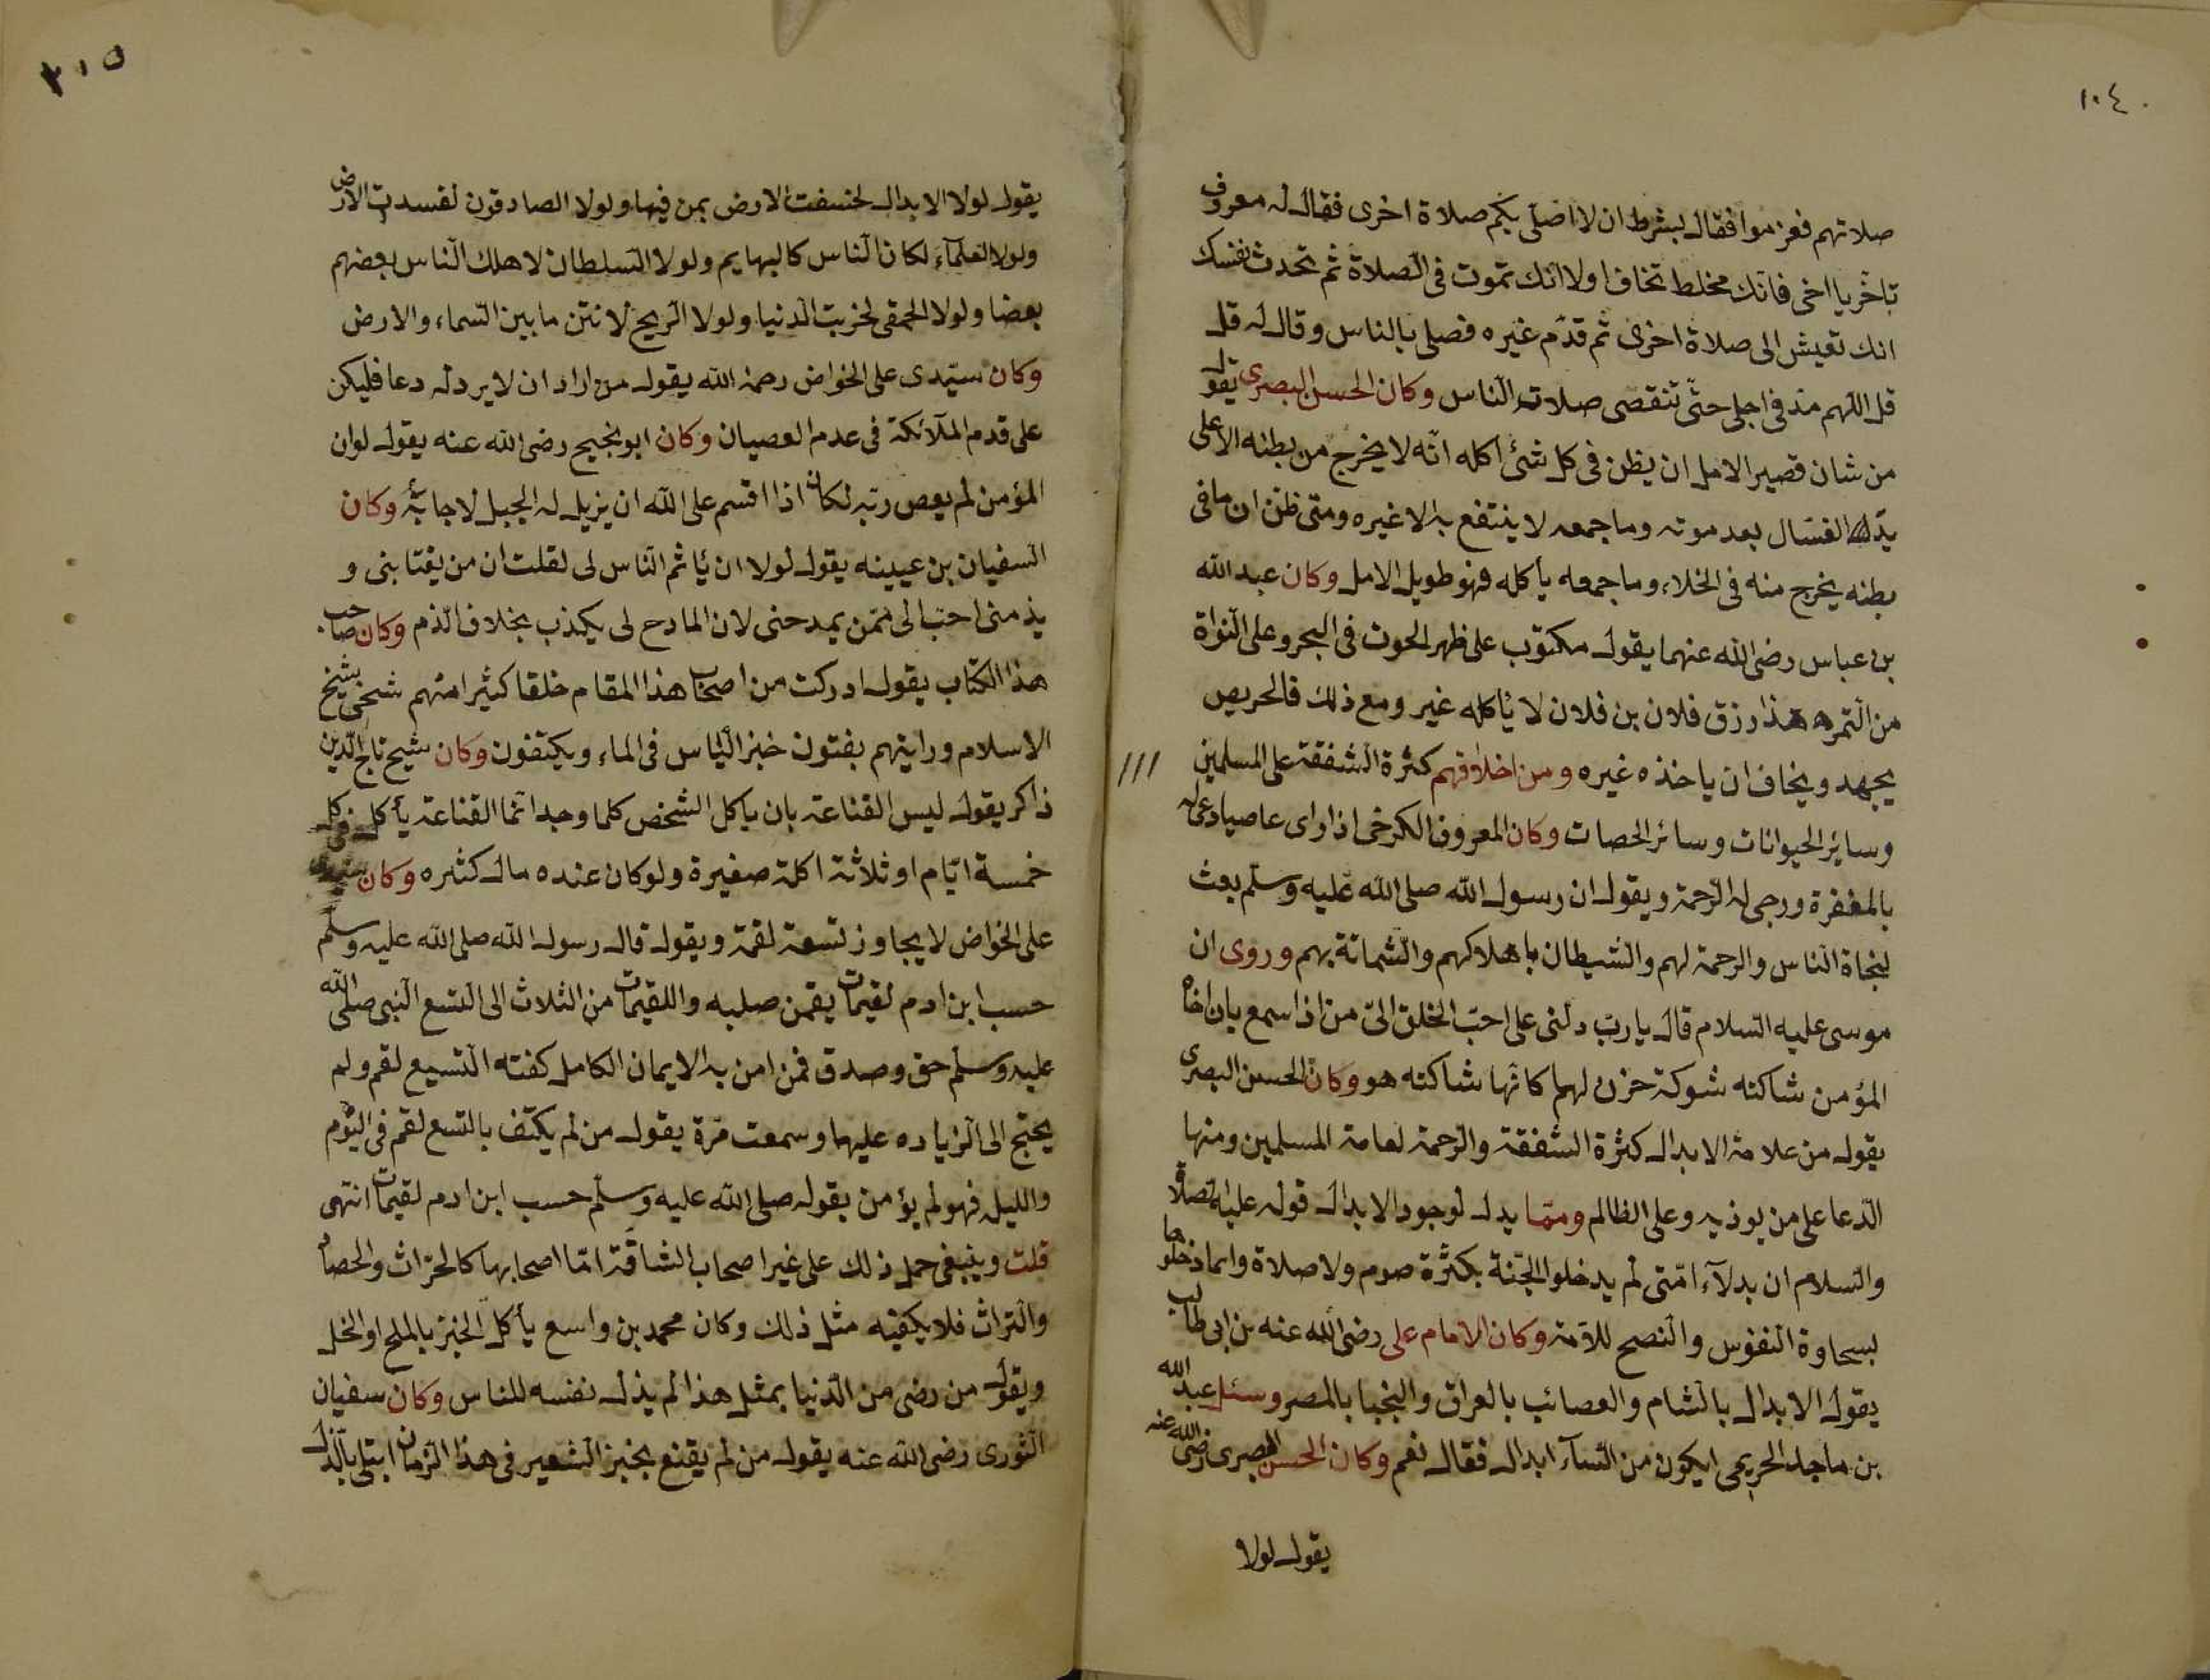 ١٠٤
صلاتهم فعزموا فقال بشرط ان لا اصلى بكم صلاة اخرى فقال له معروف
تاخر يا اخى فانك مخلط تخاف اولا انك تموت فى الصلاة ثم تحدث نفسك
انك تعيش الى صلاة اخرى ثم قدم غيره فصلى بالناس وقال له قل
قل اللهم مد فى اجلى حتى تنقصى صلات الناس وكان الحسن البصرى يقول
من شان قصير الامل ان يظن فى كل شئ اكله انه لا يخرج من بطنه الا على
يد الغسال بعد موته وما جمعه لا ينتفع به الا غيره ومتى ظن ان ما فى
بطنه يخرج منه فى الخلاء وما جمعه يأكله فهو طويل الامل وكان عبد الله
بن عباس رضى الله عنهما يقول مكتوب على ظهر الحوت فى البحر وعلى النواة
من التمره هذا رزق فلان بن فلان لا يأكله غير ومع ذلك فالحريص
يجهد ويخاف ان ياخذه غيره ومن اخلاقهم كثرة الشفقة على المسلمين
وسائر الحيوانات وسائر الحصات وكان المعروف الكرخى اذا راى عاصيا دعى له
بالمغفرة ورجى له الرحمة ويقول ان رسول الله صلى الله عليه وسلم بعث
لنجاة الناس والرحمة لهم والشيطان باهلاكهم والشماتة بهم وروى ان
موسى عليه السلام قال يا رب دلنى على احب الخلق الى من اذا سمع بان اخاه
المؤمن شاكته شوكة حزن لهم كانها شاكته هو وكان الحسن البصرى
يقول من علامة الابدال كثرة الشفقة والرحمة لعامة المسلمين ومنها
الدعا على من يوذيه وعلى الظالم ومما يدل لوجود الابدال قوله عليه الصلاة
والسلام ان بدلاء امتى لم يدخلوا الجنة بكثرة صوم ولا صلاة وانما دخلوها
بسحاوة النفوس والنصح للامة وكان الامام على رضى الله عنه بن ابى طالب
يقول الابدال بالشام والعصائب بالعراق والنجبا بالمصر وسئل عبد الله
بن ماجد الحريمى ايكون من النساء ابدال فقال نعم وكان الحسن البصرى رضى الله عنه
يقول لولا
٣١٥
يقول لولا الابدال لخسفت الارض بمن فيها ولولا الصادقون لفسدت الارض
ولولا العلماء لكان الناس كالبهايم ولولا السلطان لاهلك الناس بعضهم
بعضا ولولا الحمقى لخربت الدنيا ولولا الريح لانتن ما بين السماء والارض
وكان سيدى على الخواص رحمة الله يقول من اراد ان لا يرد له دعا فليكن
على قدم الملائكة فى عدم العصيان وكان ابو نجيح رضى الله عنه يقول لو ان
المؤمن لم يعص ربه لكان اذا اقسم على الله ان يزيل له الجبل لاجابه وكان
السفيان بن عيينه يقول لولا ان يأثم الناس لى لقلت ان من يغتابنى و
يذمنى احب الى ممن يمدحنى لان المادح لى يكذب بخلاف الذم وكان صاحب
هذا الكتاب يقول ادركت من اصحاب هذا المقام خلقا كثيرا منهم شخى شيخ
الاسلام ورايتهم يفتون خبز اليابس فى الماء ويكتفون وكان شيخ تاج الدين
ذاكر يقول ليس القناعة بان ياكل الشخص كلما وجد انما القناعة يأكل فى كل
خمسة ايام او ثلاثة اكلة صغيرة ولو كان عنده مال كثره وكان سيدى
على الخواص لا يجاوز تسعة لقمة ويقول قال رسول الله صلى الله عليه وسلم
حسب ابن ادم لقيمات يقمن صلبه واللقيمات من الثلاث الى التسع النبى صلى الله
عليه وسلم حق وصدق فمن امن به الايمان الكامل كفته التسع لقم ولم
يحتج الى الزياده عليها وسمعت مرة يقول من لم يكتف بالتسع لقم فى اليوم
والليل فهو لم يؤمن بقوله صلى الله عليه وسلم حسب ابن ادم لقيمات انتهى
قلت وينبغى حمل ذلك على غير اصحاب الشاقة اما اصحابها كالحراث والحصاد
والتراث فلا يكفيه مثل ذلك وكان محمد بن واسع يأكل الخبز بالملح او الخل
ويقول من رضى من الدنيا بمثل هذا لم يذل نفسه للناس وكان سفيان
الثورى رضى الله عنه يقول من لم يقنع بخبز الشعير فى هذا الزمان ابتلى بالذل